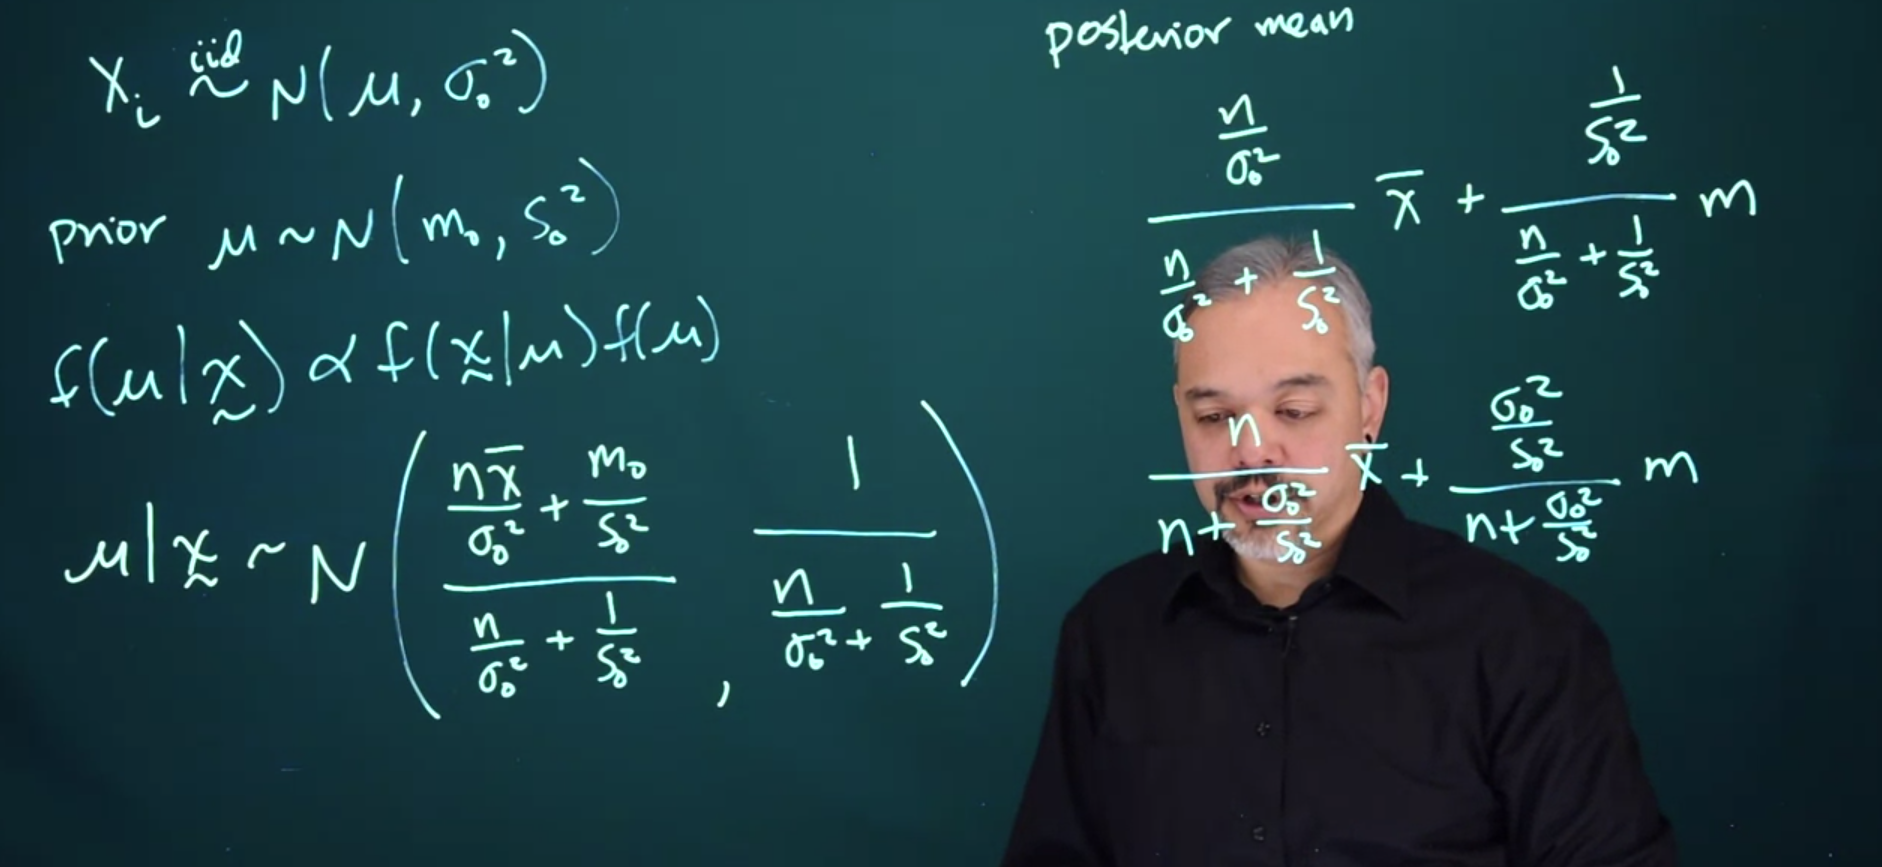 Xᵢ iid~ N(μ, σ₀²)
prior μ ~ N(m₀, s₀²)
f(μ|x̰) ∝ f(x̰|μ)f(μ)
μ|x̰ ~ N( (nx̄/σ₀² + m₀/s₀²) / (n/σ₀² + 1/s₀²) , 1 / (n/σ₀² + 1/s₀²) )
posterior mean
(n/σ₀²) / (n/σ₀² + 1/s₀²) x̄ + (1/s₀²) / (n/σ₀² + 1/s₀²) m
n / (n + σ₀²/s₀²) x̄ + (σ₀²/s₀²) / (n + σ₀²/s₀²) m